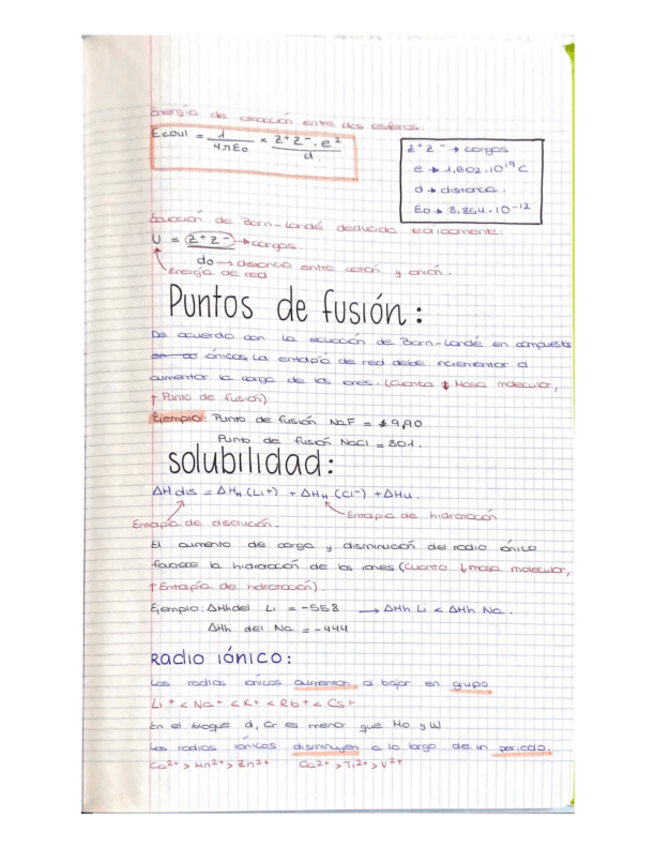 Energía de atracción entre dos esferas.
Ecoul = 1 / 4πεo × z+ z-. e² / d.
z+ z- → cargas
e → 1,602.10¹⁹ C
d → distancia.
Eo → 8,854.10-¹²
Ecuación de Born-Landé deducida teóricamente:
U = z+ z- → cargas.
do → distancia entre catión y anión.
Energía de red
Puntos de fusión:
De acuerdo con la ecuación de Born-Landé en compuestos
iónicos, la entalpía de red debe incrementar a
aumentar la carga de los iones. (Cuanto ↓ Masa molecular,
↑ Punto de fusión)
Ejemplo: Punto de fusión NaF =
Punto de fusión NaCl = 801.
solubilidad:
ΔH dis = ΔHH (Li+) + ΔHH (Cl-) + ΔHu.
Entapía de disolución.
Entapia de hidratación
El aumento de carga y disminución del radio iónico
favorece la hidratación de los iones (Cuanto ↓ masa molecular,
↑ Entalpía de hidratación)
Ejemplo: ΔHh del Li = -558 → ΔHh Li < ΔHh Na.
ΔHh del Na = -444
Radio iónico:
Los radios iónicos aumentan a bajar en grupo
Li+ < Na+ < K+ < Rb+ < Cs+
En el bloque d, Cr es menor que Mo y W
Los radios iónicos disminuyen a lo largo de un periodo.
Ca2+ > Mn2+ > Zn2+ Ca2+ > Ti2+ > V2+